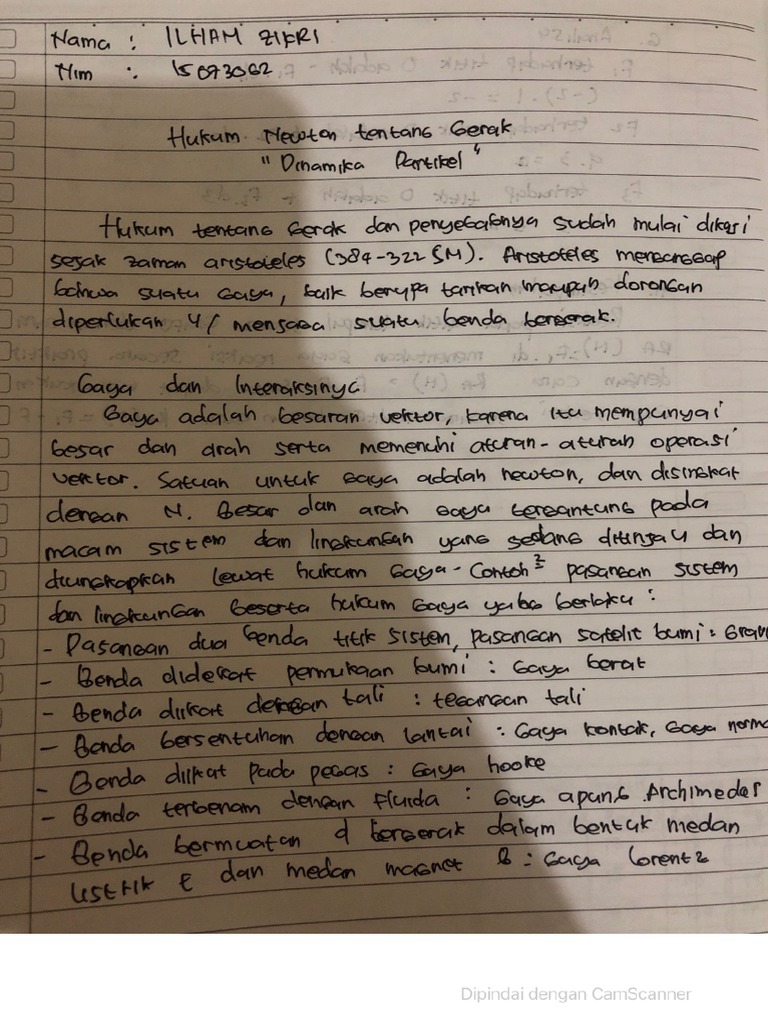 Nama : ILHAM ZIKRI
Nim : 15073062
Hukum Newton tentang Gerak
"Dinamika Partikel"
Hukum tentang Gerak dan penyebabnya sudah mulai dikaji
sejak zaman aristoteles (384-322 SM). Aristoteles menganggap
bahwa suatu Gaya, baik berupa tarikan maupun dorongan
diperlukan U/ menjaga suatu benda bergerak.
Gaya dan Interaksinya
Gaya adalah besaran vektor, karena itu mempunyai
besar dan arah serta memenuhi aturan-aturan operasi
vektor. Satuan untuk gaya adalah newton, dan disingkat
dengan N. Besar dan arah gaya bergantung pada
macam sistem dan lingkungan yang sedang ditinjau dan
diungkapkan lewat hukum Gaya- Contoh² pasangan sistem
dan lingkungan beserta hukum Gaya yang berlaku :
- Pasangan dua benda titik sistem, pasangan satelit bumi : Grav
- Benda didekat permukaan bumi : Gaya berat
- Benda diikat dengan tali : tegangan tali
- Benda bersentuhan dengan lantai : Gaya kontak, Gaya norma
- Benda diikat pada pegas : Gaya hooke
- Benda terbenam dengan fluida : Gaya apung Archimedes
- Benda bermuatan q bergerak dalam bentuk medan
listrik E dan medan magnet B : Gaya Lorentz
Dipindai dengan CamScanner